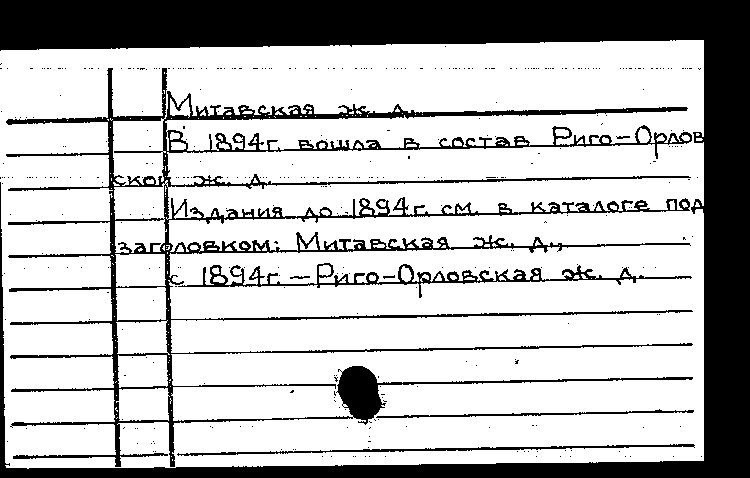 Митавская ж. д.
В 1894г. вошла в состав Риго-Орлов
ской ж. д.
Издания до 1894г. см. в каталоге под
заголовком: Митавская ж. д.,
с 1894г. — Риго-Орловская ж. д.